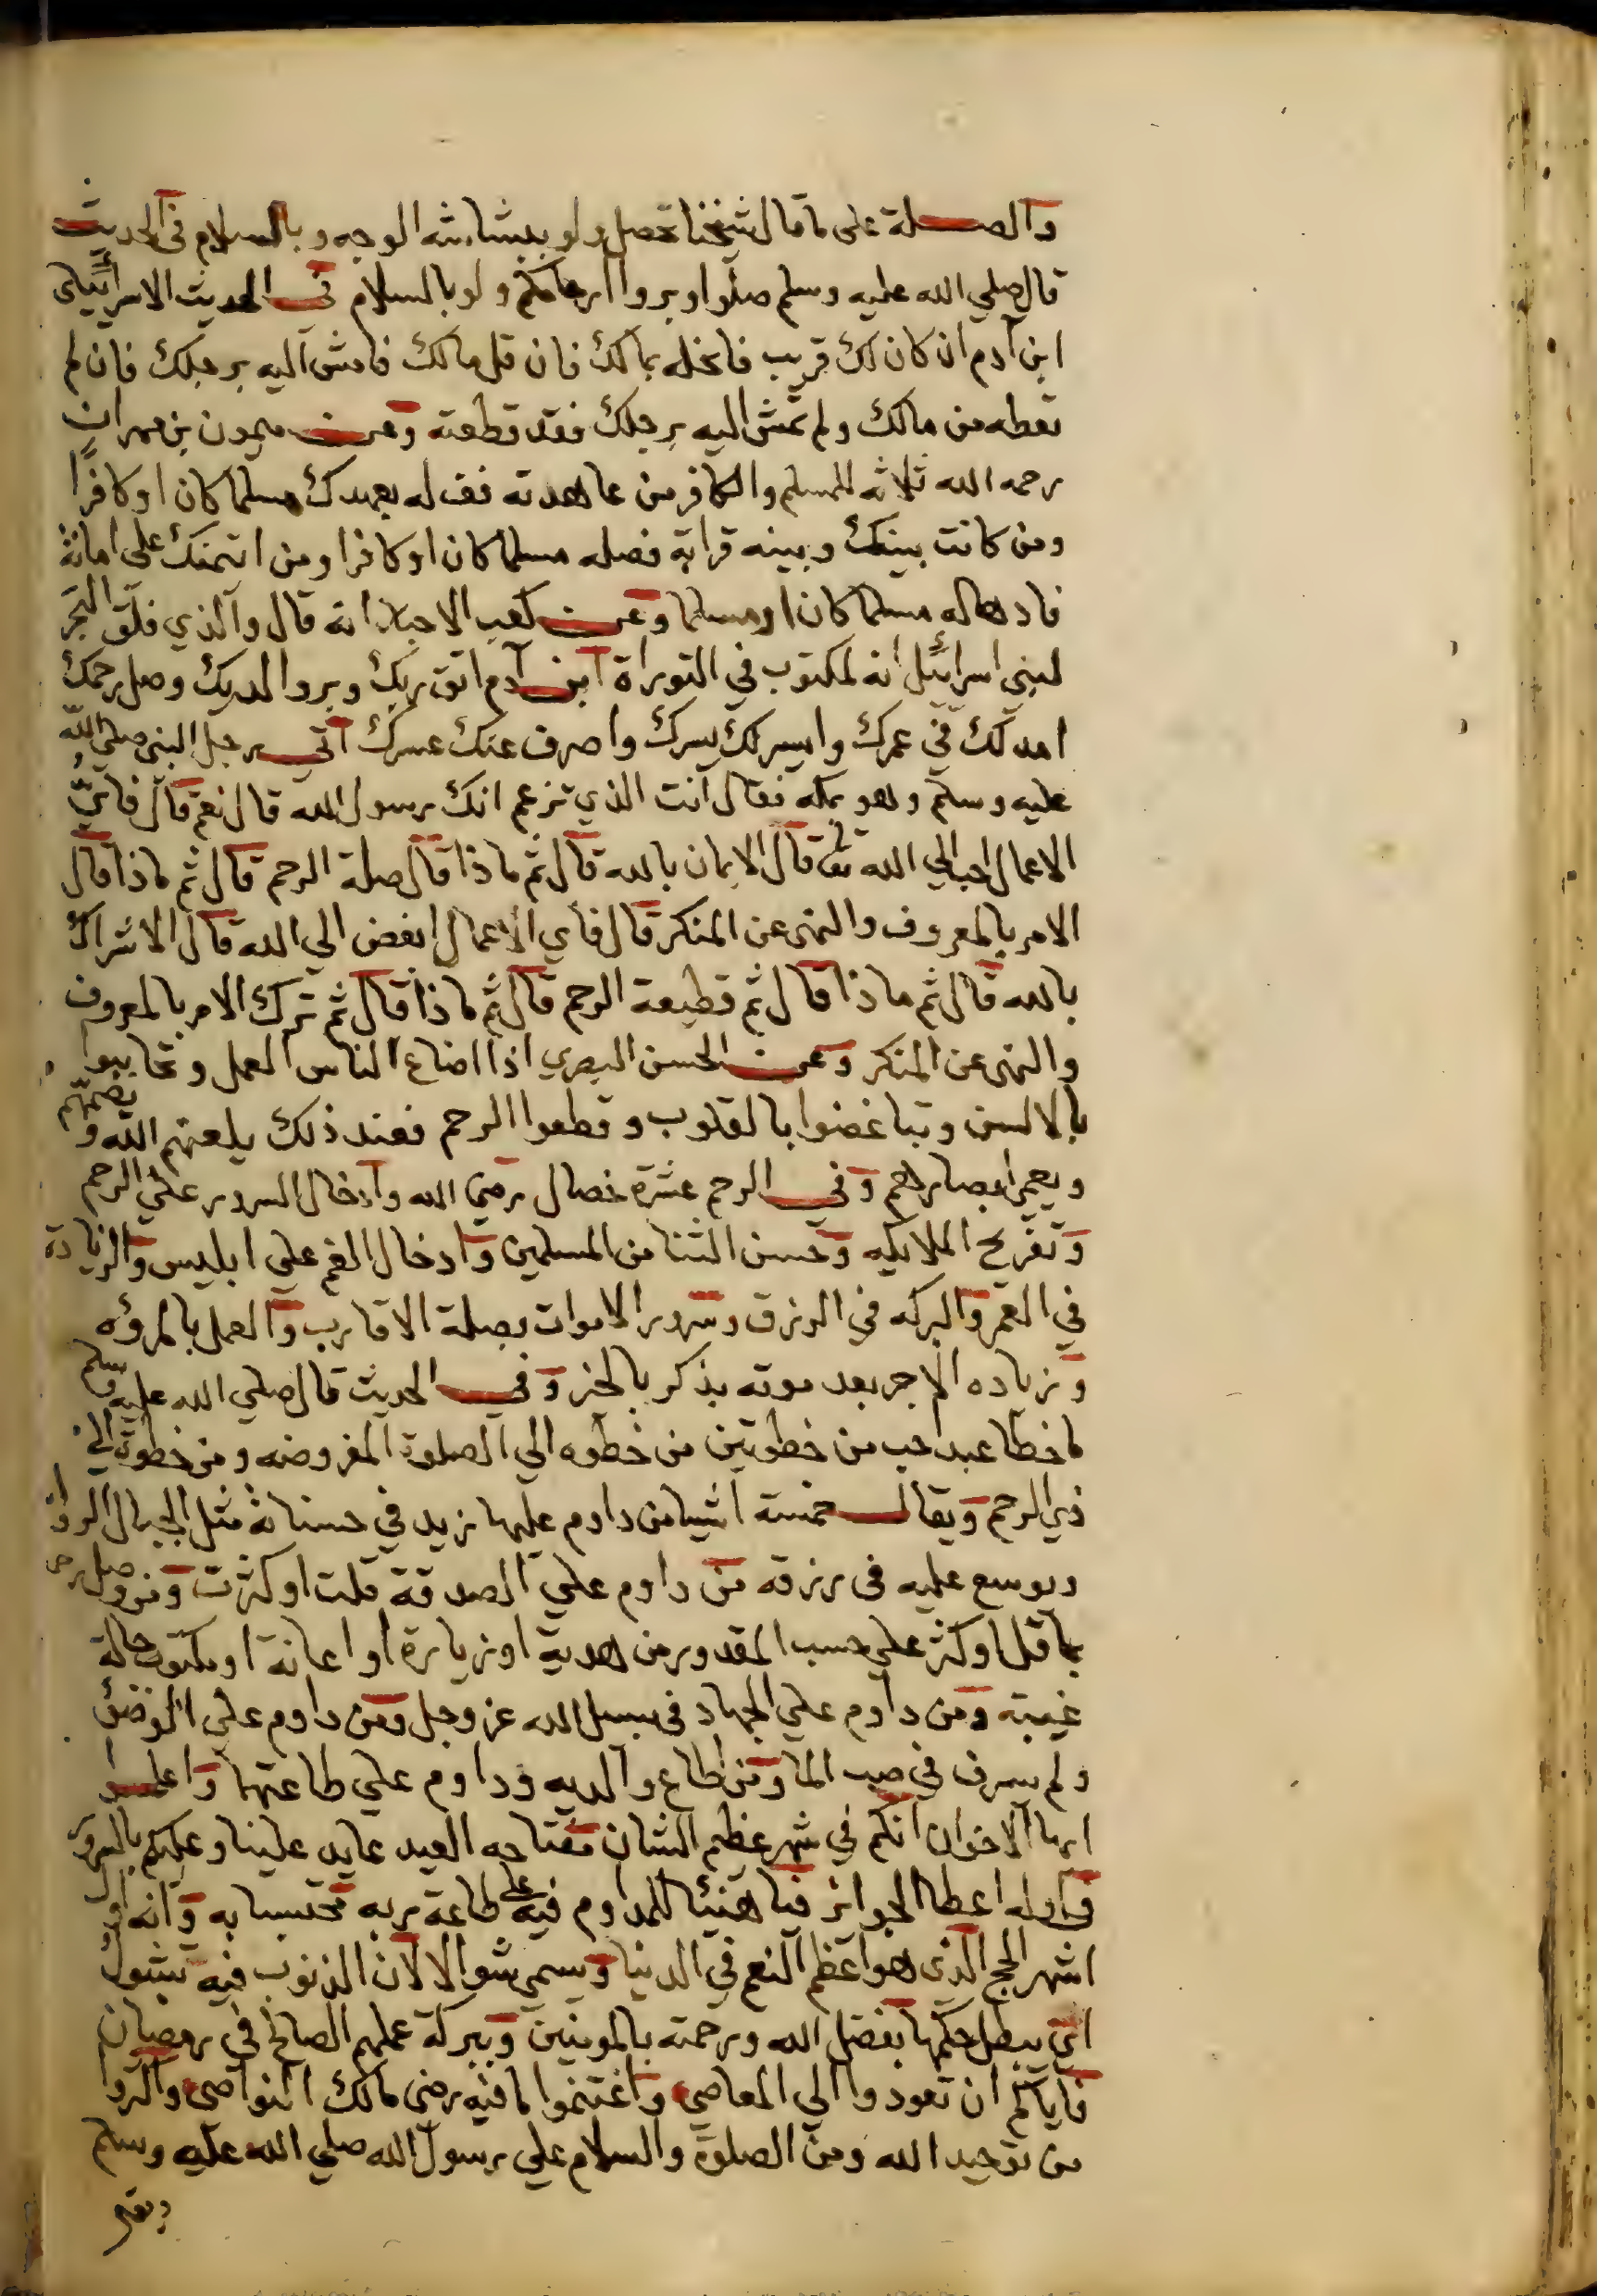 والصلة على ما قال شيخنا تحصل ولو ببشاشة الوجه وبالسلام في الحديث
قال صلي الله عليه وسلم صلوا وبروا ارحامكم ولو بالسلام في الحديث الاسرائيلى
ابن آدم ان كان لك قريب فانحله بمالك فان قل مالك فامش اليه برجلك فان لم
تعطه من مالك ولم تمش اليه برجلك فقد قطعته وعن ميمون بن مهران
رحمه الله ثلاثه للمسلم والكافر من عاهدته فف له بعهدك مسلما كان او كافرًا
ومن كانت بينك وبينه قرابة فصله مسلما كان او كافرا ومن ائتمنك على امانة
فادها له مسلما كان او مسلما وعن كعب الاحبار انه قال والذي فلق البحر
لبني اسرائيل انه لمكتوب في التوراة ابن آدم اتق ربك وبر والديك وصل رحمك
امد لك في عمرك وايسر لك يسرك واصرف عنك عسرك اتي رجل النبى صلي الله
عليه وسلم وهو بمكه فقال انت الذي تزعم انك رسول الله قال نعم قال فايّ
الاعمال احب الي الله تعا قال الايمان بالله قال ثم ماذا قال صلة الرحم قال ثم ماذا قال
الامر بالمعروف والنهى عن المنكر قال فاي الاعمال ابغض الي الله قال الاشراك
بالله قال ثم ماذا قال ثم قطيعة الرحم قال ثم ماذا قال ثم ترك الامر بالمعروف
والنهى عن المنكر وعن الحسن البصري اذا اضاع الناس العمل وتحاببوا
بالالسن وتباغضوا بالقلوب وقطعوا الرحم فعند ذلك يلعنهم الله ويصمهم
ويعمي ابصارهم وفي الرحم عشرة خصال رضى الله وادخال السرور علي الرحم
وتفريح الملايكه وحسن الثنا من المسلمين وادخال الغم علي ابليس والزيادة
في العمر والبركه في الرزق وسرور الاموات بصلة الاقارب والعمل بالمرؤه
وزياده الاجر بعد موته بذكر بالخير وفي الحديث قال صلي الله عليه وسلم
ما خطا عبد احب من خطوتين من خطوه الي الصلوة المفروضه ومن خطوة الي
ذي الرحم ويقال خمسة اشيا من داوم عليها زيد في حسناته مثل الجبال الروا
ويوسع عليه في رزقه من داوم علي الصدقة قلت او كثرت ومن وصل رحم
بما قل او كثر علي حسب المقدور من هدية او زيارة او اعانة او مكتوب حالة
غيبته ومن داوم علي الجهاد في سبيل الله عز وجل ومن داوم علي الوضؤ
ولم يسرف في صب الما ومن اطاع والديه وداوم علي طاعتهما واعلموا
ايها الاخوان انكم في شهر عظيم الشان مفتاحه العيد عايد علينا وعليكم
وأوله اعطا الجوائز فيا هنيئا للمداوم فيه على طاعة ربه محتسبا به وانه اول
اشهر الحج الذى هو اعظم النعم في الدنيا ويسمي شوالا لان الذنوب فيه تشول
اي يبطل حكمها بفضل الله ورحمته بالمومنين وببركة عملهم الصالح في رمضان
فاياكم ان تعودوا الي المعاصي واغتنموا ما فيه رضى مالك النواصى واكثروا
من توحيد الله ومن الصلوة والسلام علي رسول الله صلي الله عليه وسلم